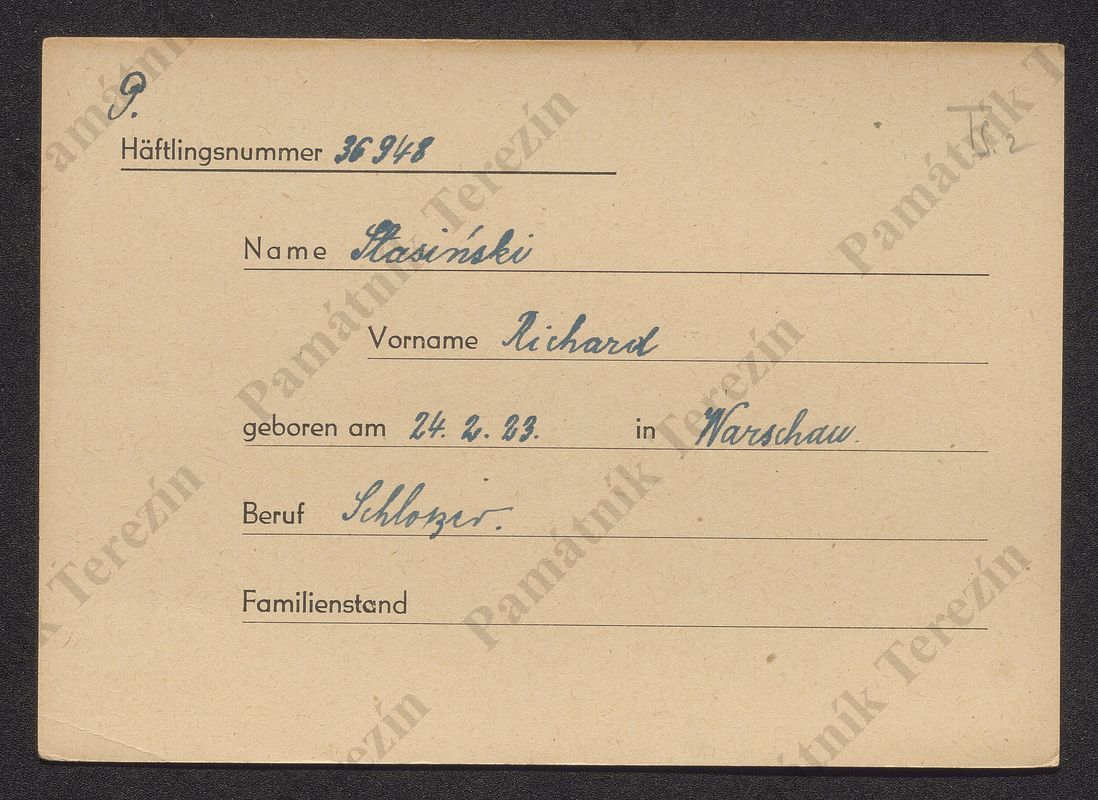 P.
Häftlingsnummer 36948
Name Stasiński
Vorname Richard
geboren am 24. 2. 23. in Warschau.
Beruf Schlosser.
Familienstand
Památník Terezín